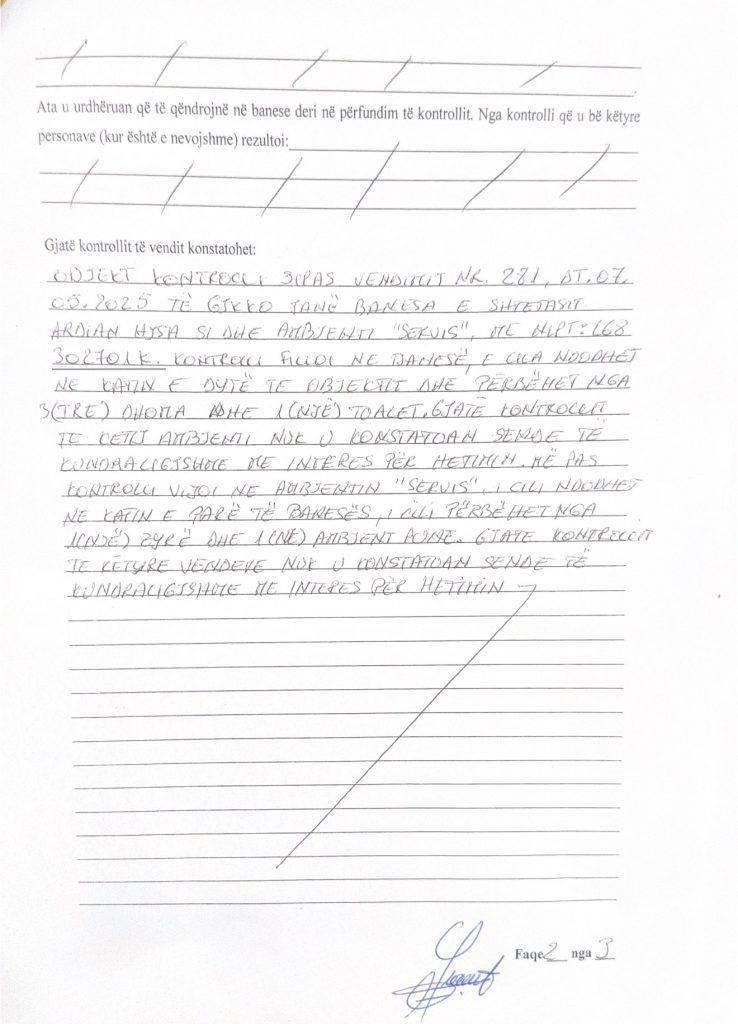 Ata u urdhëruan që të qëndrojnë në banese deri në përfundim të kontrollit. Nga kontrolli që u bë këtyre
personave (kur është e nevojshme) rezultoi:
Gjatë kontrollit të vendit konstatohet:
OBJEKT KONTROLLI SIPAS VENDIMIT NR. 281, DT.07.
05.2025 TË GJKKO JANË BANESA E SHTETASIT
ARDIAN HYSA SI DHE AMBJENTI "SERVIS", ME NIPT: L68
302701K. KONTROLLI FILLOI NE BANESË, E CILA NDODHET
NE KATIN E DYTË TE OBJEKTIT DHE PËRBËHET NGA
3(TRE) DHOMA DHE 1(NJË) TOALET. GJATË KONTROLLIT
TE KETIJ AMBJENTI NUK U KONSTATUAN SENDE TË
KUNDRALIGJSHME ME INTERES PËR HETIMIN. MË PAS
KONTROLLI VIJOI NE AMBJENTIN "SERVIS", I CILI NDODHET
NE KATIN E PARË TË BANESËS, I CILI PËRBËHET NGA
1(NJË) ZYRË DHE 1(NË) AMBJENT PUNE. GJATE KONTROLLIT
TE KËTYRE VENDEVE NUK U KONSTATUAN SENDE TË
KUNDRALIGJSHME ME INTERES PËR HETIMIN
Faqe 2 nga 3